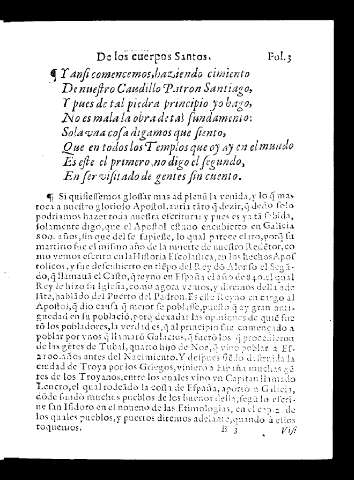 De los cuerpos Santos. Fol. 3
¶ Y ansi comencemos, haziendo cimiento
De nuestro Caudillo Patron Santiago,
Y pues de tal piedra principio yo hago,
No es mala la obra de tal fundamento:
Sola vna cosa digamos que siento,
Que en todos los Templos que oy ay en el mundo
Es este el primero, no digo el segundo,
En ser visitado de gentes sin cuento.
¶ Si quisiessemos glossar mas ad plenũ la venida, y lo q̃
toca a nuestro glorioso Apostol, q̃ dezir, q̃ solo
podriamos hazer toda nuestra escritura: y pues es ya sabida,
solamente digo, que el Apostol estuuo encubierto en Galicia
800. años, sin que del se supiesse, lo qual parece porq̃ su
martirio fue el mismo año de la muerte de nuestro Redẽtor, co
mo vemos escrito en la Historia Escolastica, en los hechos Apos
tolicos, y fue descubierto en tiẽpo del Rey dõ Alonso el Segũ
do, q̃ llamauã el Casto, q̃ reyno en España el año de el qual
Rey le hizo su Iglesia, como agora vemos, y diremos della ade
lãte, hablãdo del Puerto del Padron. Es este Reyno en cargo al
Apostol, q̃ dio causa q̃ mejor se poblasse, puesto q̃ ay gran anti-
guedad en su poblaciõ, porq̃ dexadas las opiniones de quiẽ fue
rõ los pobladores, la verdad es, q̃ al principio fue començado a
poblar por vnos q̃ llamarõ Galatas, q̃ fuerõ los q̃ procedieron
de las gẽtes de Tubal, quarto hijo de Noe, q̃ vino poblar a Es-
años antes del Nacimiento. Y despues siẽdo destruida la
ciudad de Troya por los Griegos, viniero a España muchas gẽ
tes de los Troyanos, entre los quales vino vn Capitan llamado
Teucro, el qual rodeãdo la costa de España, aporto a Galicia,
dõde fundò muchos pueblos de los buenos della, segũ lo escri-
ue san Isidoro en el noueno de las Etimologias, en el cap. 2. de
los quales pueblos, y puertos diremos adelante, quando a ellos
toquemos. B 3 Visi